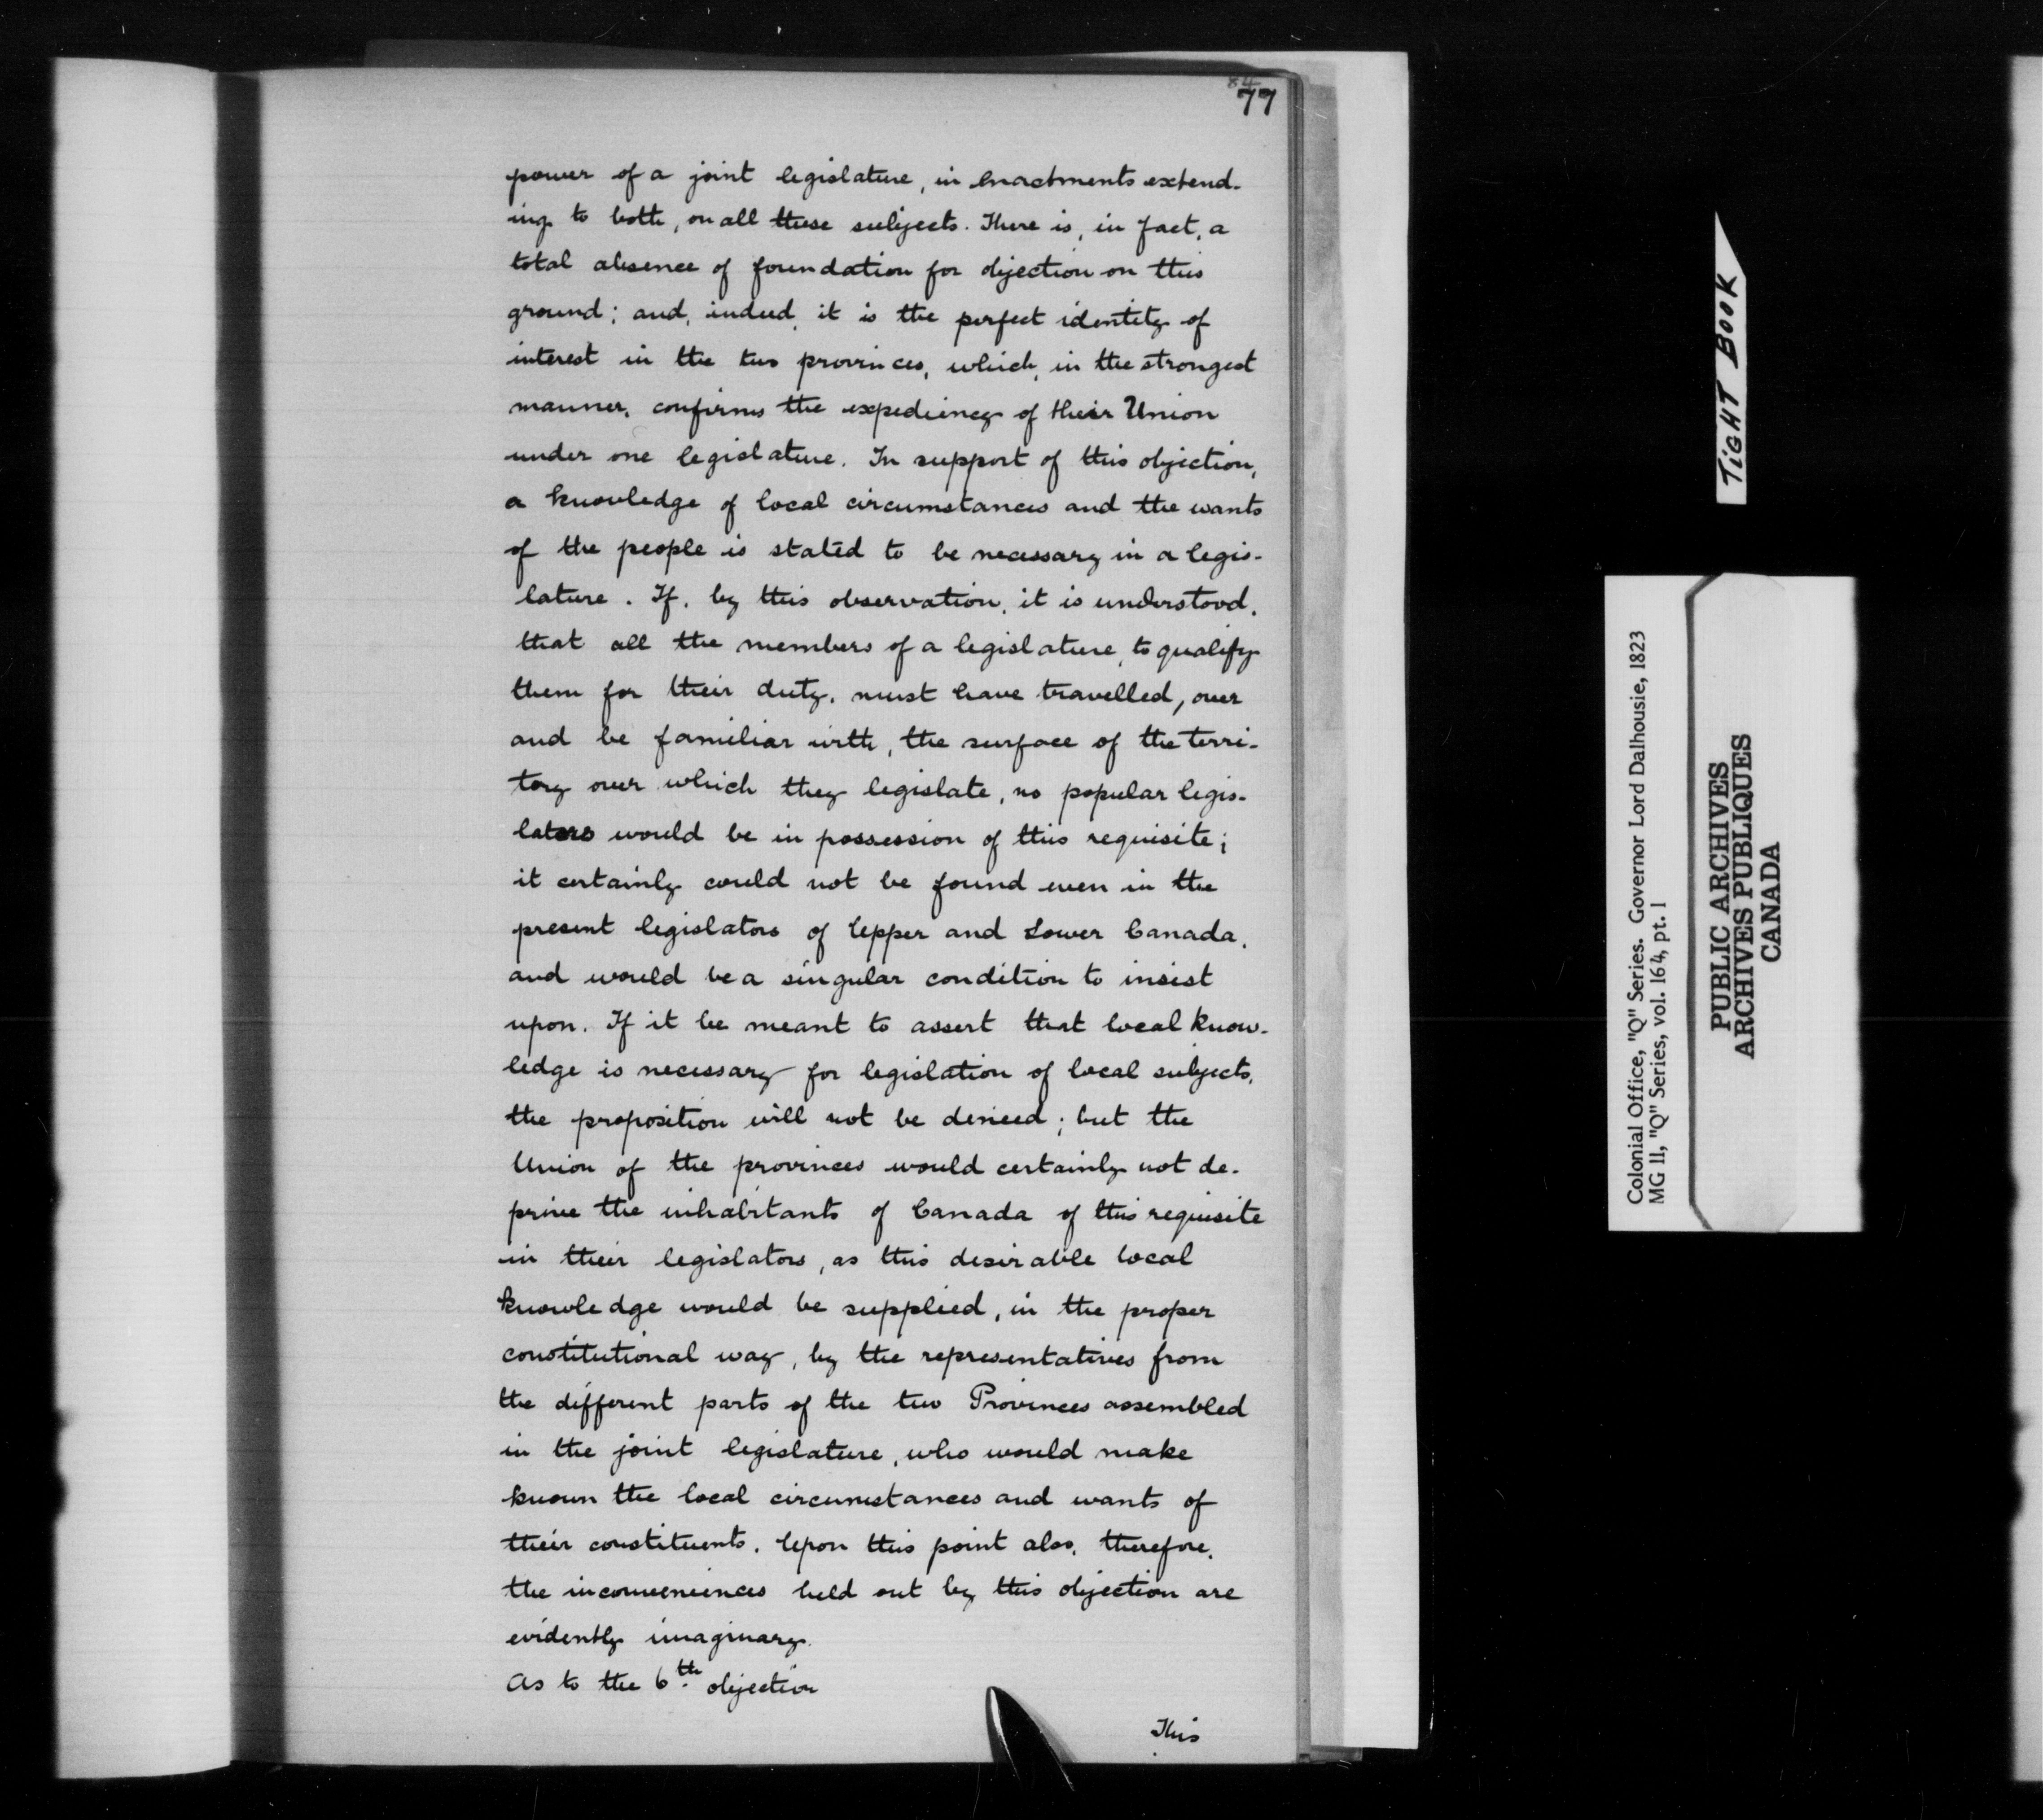 84
77
power of a joint legislature, in enactments extend-
ing to both, on all these subjects. There is, in fact, a
total absence of foundation for objection on this
ground; and, indeed, it is the perfect identity of
interest in the two provinces, which, in the strongest
manner, confirms the expediency of their Union
under one legislature. In support of this objection,
a knowledge of local circumstances and the wants
of the people is stated to be necessary in a legis-
lature. If, by this observation, it is understood,
that all the members of a legislature, to qualify
them for their duty, must have travelled, over
and be familiar with, the surface of the terri-
tory over which they legislate, no popular legis-
lators would be in possession of this requisite;
it certainly could not be found even in the
present legislators of Upper and Lower Canada,
and would be a singular condition to insist
upon. If it be meant to assert that local know-
ledge is necessary for legislation of local subjects,
the proposition will not be denied; but the
Union of the provinces would certainly not de-
prive the inhabitants of Canada of this requisite
in their legislators, as this desirable local
knowledge would be supplied, in the proper
constitutional way, by the representatives from
the different parts of the two Provinces assembled
in the joint legislature, who would make
known the local circumstances and wants of
their constituents. Upon this point also, therefore,
the inconveniences held out by this objection are
evidently imaginary.
As to the 6th objection
This
TIGHT BOOK
Colonial Office, "Q" Series. Governor Lord Dalhousie, 1823
MG 11, "Q" Series, vol. 164, pt. 1
PUBLIC ARCHIVES
ARCHIVES PUBLIQUES
CANADA